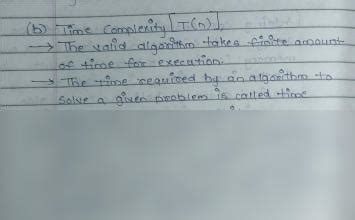 (b) Time Complexity [T(n)].
→ The valid algorithm takes finite amount
of time for execution.
→ The time required by an algorithm to
solve a given problem is called time